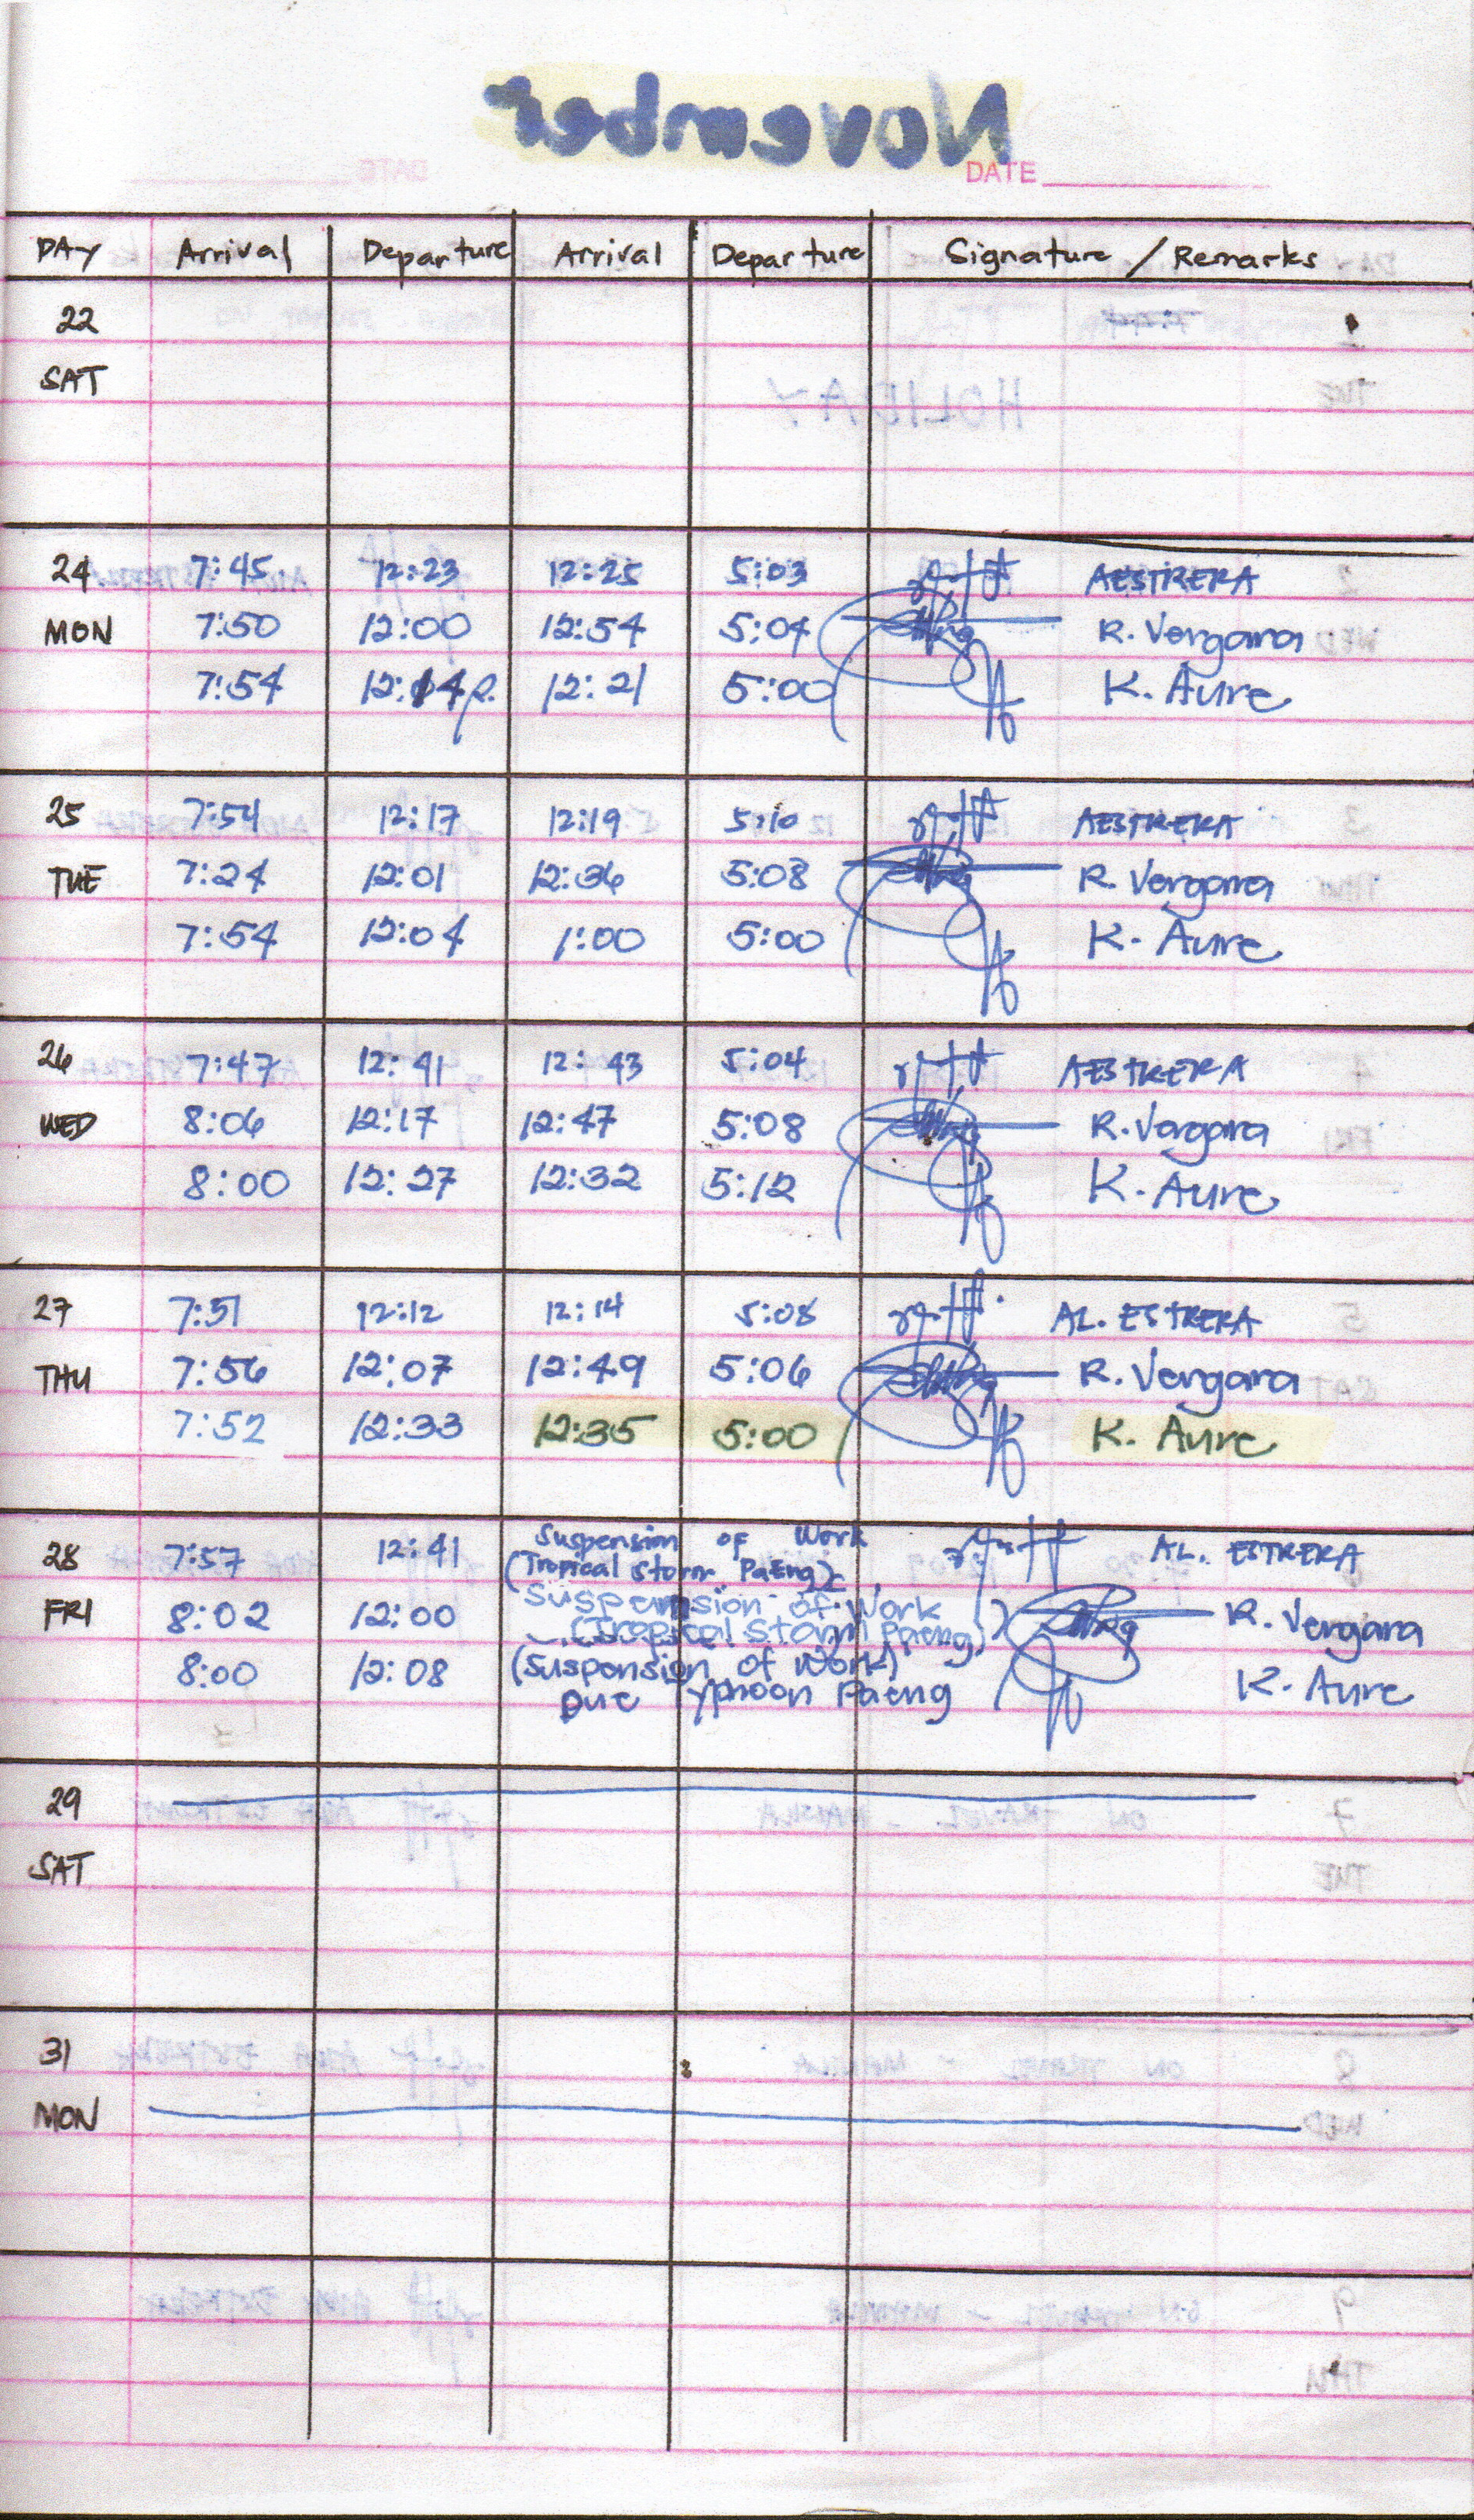 November
DATE
DAY Arrival Departure Arrival Departure Signature / Remarks
22
SAT
HOLIDAY
24 7:45 12:23 12:25 5:03 AESTRERA
MON 7:50 12:00 12:54 5:04 R. Vergara
7:54 12:14p. 12:21 5:00 K. Aure
25 7:54 12:17 12:19 5:10 AESTRERA
TUE 7:24 12:01 12:36 5:08 R. Vergara
7:54 12:04 1:00 5:00 K. Aure
26 7:47 12:41 12:43 5:04 AESTRERA
WED 8:06 12:17 12:47 5:08 R. Vergara
8:00 12:27 12:32 5:12 K. Aure
27 7:51 12:12 12:14 5:08 AL. ESTRERA
THU 7:56 12:07 12:49 5:06 R. Vergara
7:52 12:33 12:35 5:00 K. Aure
28 7:57 12:41 Suspension of Work AL. ESTRERA
(Tropical Storm PaEng)
FRI 8:02 12:00 Suspension of Work R. Vergara
(Tropical Storm Paeng)
8:00 12:08 (Suspension of Work) K. Aure
Due Typhoon Paeng
29
SAT
31
MON